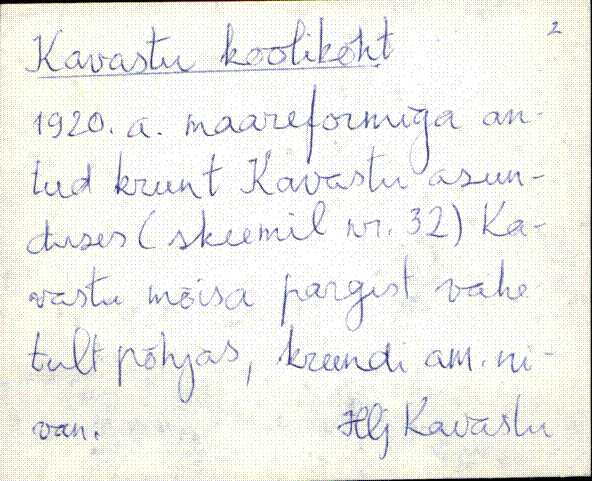 2
Kavastu koolikoht
1920. a. maareformiga an-
tud krunt Kavastu asun-
duses (skeemil nr. 32) Ka-
vastu mõisa pargist vahe
tult põhjas, krundi am. ni-
van. Hlj Kavastu